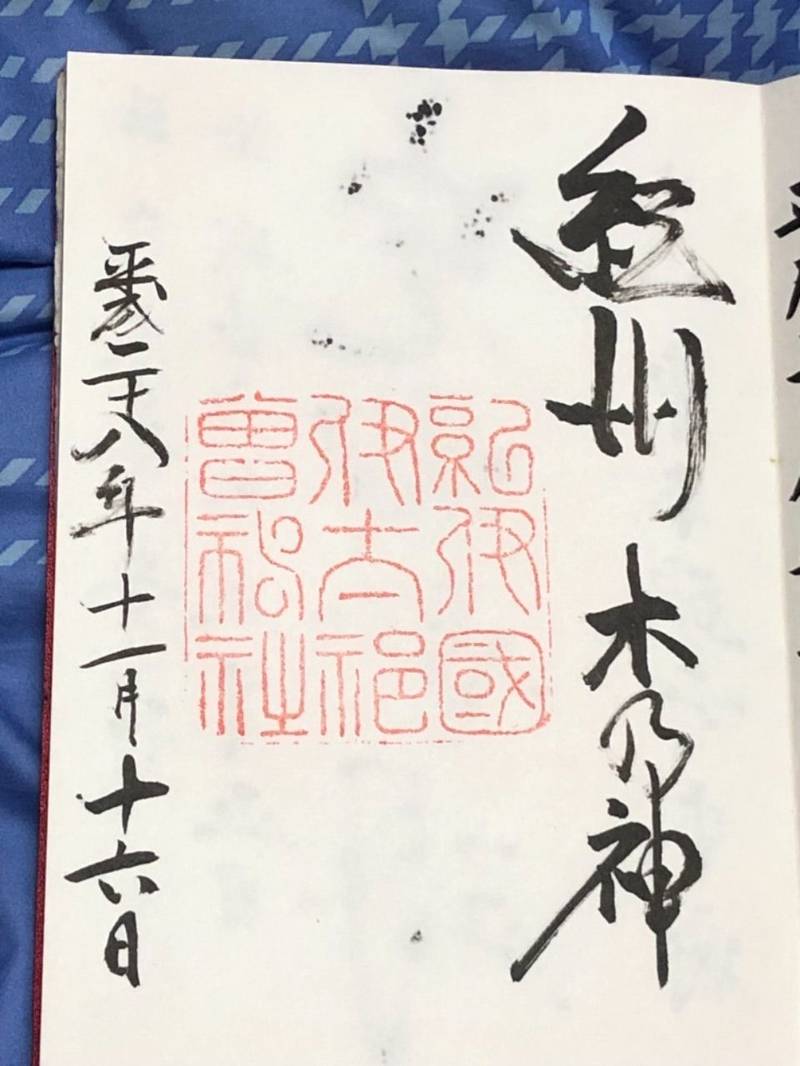 紀州 木乃神
紀伊國
伊太祁
曽神社
平成二十八年十一月十六日